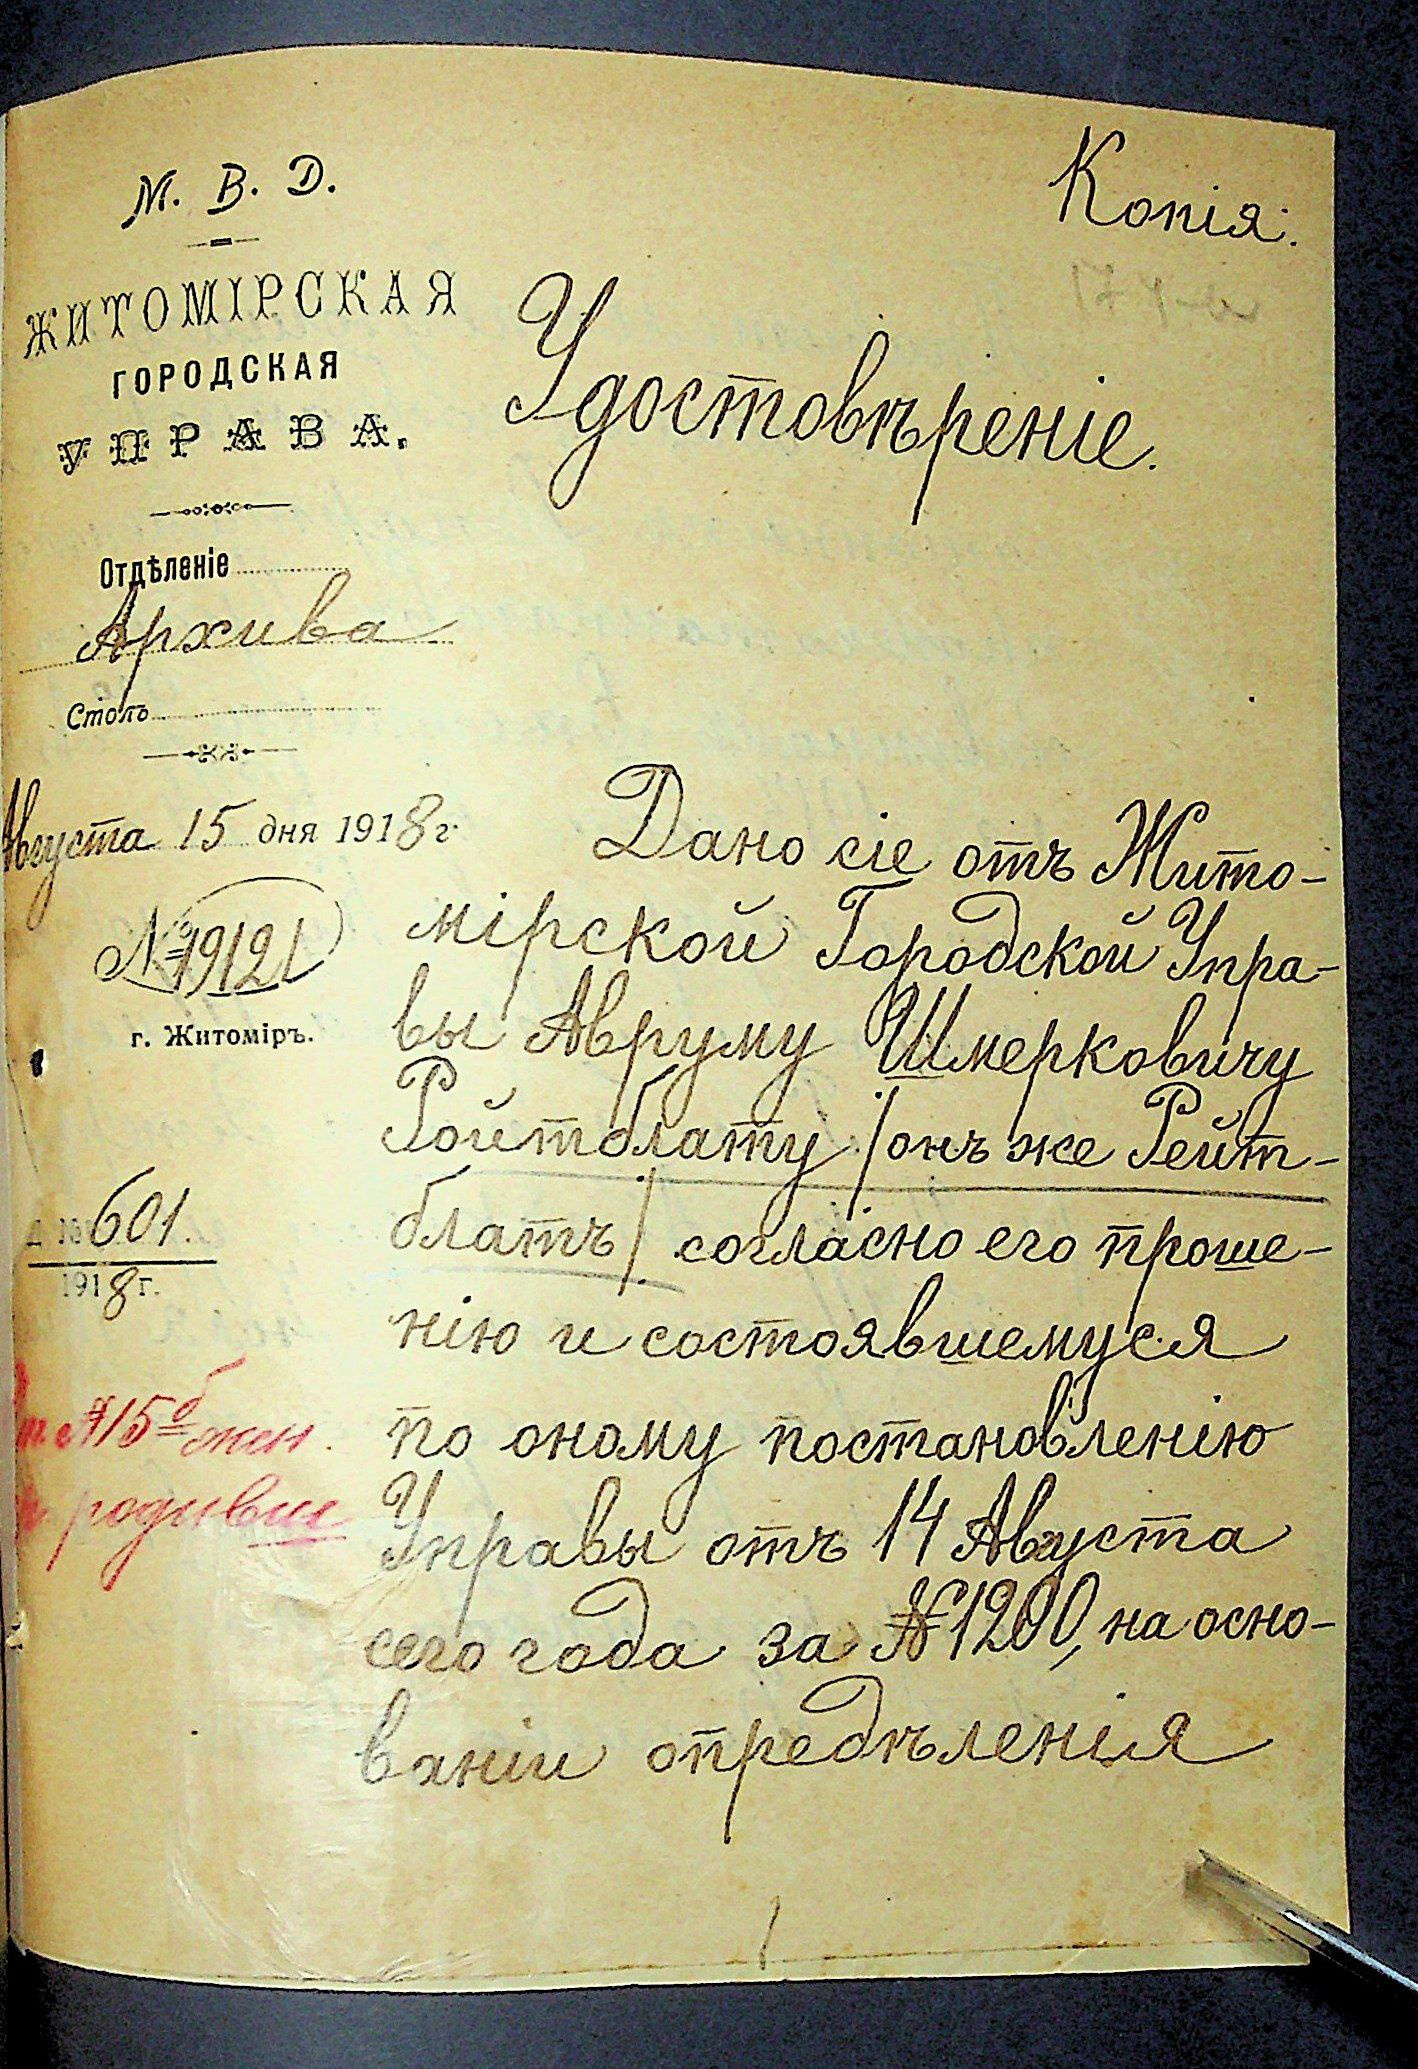 М. В. Д.
ЖИТОМІРСКАЯ
ГОРОДСКАЯ
УПРАВА.
Отдѣленіе
Архива
Столъ
Августа 15 дня 1918 г.
№ 19121
г. Житоміръ.
601.
1918 г.
№ 15 б жен.
родивш
Копія.
Удостовѣреніе.
Дано сіе отъ Жито-
мірской Городской Упра-
вы Авруму Шмерковичу
Ройтблату /онъ же Рейт-
блатъ/ согласно его проше-
нію и состоявшемуся
по оному постановленію
Управы отъ 14 Августа
сего года за № 1200, на осно-
ваніи опредѣленія